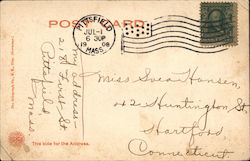 POST CARD
PITTSFIELD
MASS.
JUL 1
6 30P
1908
My address-
21 A First St
Pittsfield
Mass.
Miss Svea Hansen,
42 Huntington St.
Hartford
Connecticut
This side for the Address.